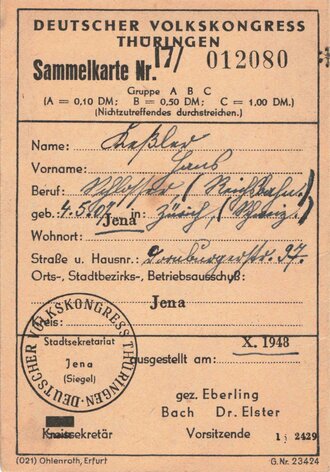 DEUTSCHER VOLKSKONGRESS
THÜRINGEN
Sammelkarte Nr. 17/ 012080
Gruppe A B C
(A = 0,10 DM; B = 0,50 DM; C = 1,00 DM.)
(Nichtzutreffendes durchstreichen.)
Name: Keßler
Vorname: Hans
Beruf: Schlosser (Reichsbahn)
geb. 4.5.07 in: Zürich, (Schweiz)
Wohnort: Jena
Straße u. Hausnr.: Dornburgerstr. 37.
Orts-, Stadtbezirks-, Betriebsausschuß:
Jena
Kreis:
DEUTSCHER VOLKSKONGRESS THÜRINGEN
Stadtsekretariat
Jena
(Siegel)
X. 1948
ausgestellt am:
gez. Eberling
Bach Dr. Elster
Kreissekretär Vorsitzende
2429
(021) Ohlenroth, Erfurt G. Nr. 23424